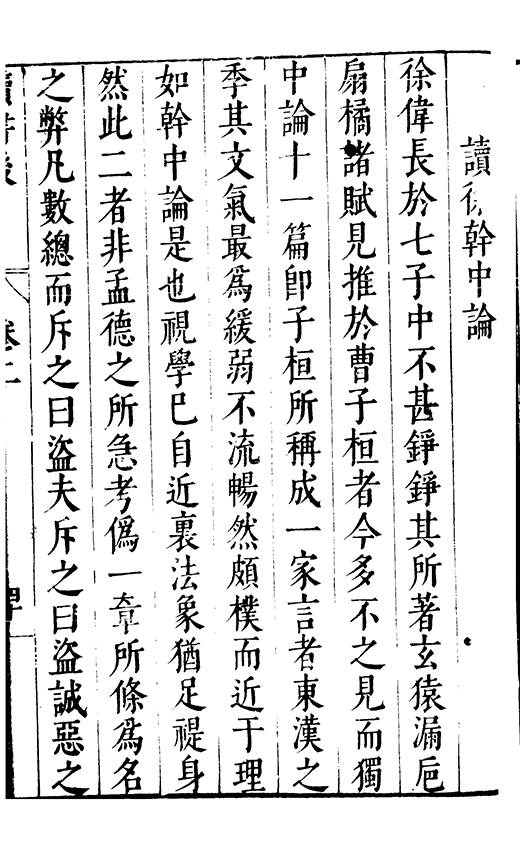 讀徐幹中論
徐偉長於七子中不甚錚錚其所著玄猿漏巵
扇橘諸賦見推於曹子桓者今多不之見而獨
中論十一篇卽子桓所稱成一家言者東漢之
季其文氣最爲緩弱不流暢然頗樸而近于理
如幹中論是也視學巳自近裏法象猶足禔身
然此二者非孟德之所急考僞一章所條爲名
之弊凡數總而斥之曰盜夫斥之曰盜誠惡之
讀書後 卷二